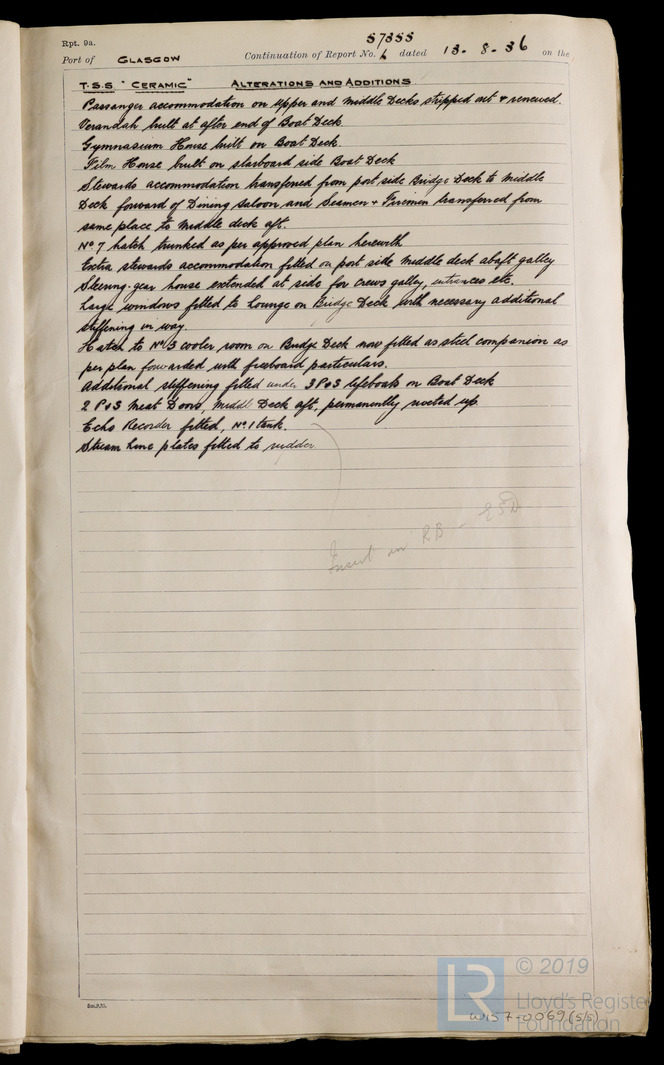 Rpt. 9a.
57355
Port of GLASGOW Continuation of Report No. dated 13-8-36 on the
T.S.S "CERAMIC" ALTERATIONS AND ADDITIONS
Passenger accommodation on upper and middle Decks stripped out & renewed.
Verandah built at after end of Boat Deck
Gymnasium House built on Boat Deck.
Film House built on starboard side Boat Deck
Stewards accommodation transferred from port side Bridge Deck to middle
Deck forward of Dining Saloon and Seamen & Firemen transferred from
same place to middle deck aft.
No 7 hatch trunked as per approved plan herewith
Extra stewards accommodation fitted on port side middle deck abaft galley
Steering-gear house extended at side for crews galley, entrances etc.
Large windows fitted to Lounge on Bridge Deck with necessary additional
stiffening in way.
Hatch to No 3 cooler room on Bridge Deck now fitted as steel companion as
per plan forwarded with freeboard particulars.
Additional stiffening fitted under 3 P&S lifeboats on Boat Deck
2 P&S Meat Doors, Middl Deck aft, permanently riveted up.
Echo Recorder fitted, No. 1 tank.
Stream line plates fitted to rudder
Insert in RB -
5m,9,35.
© 2019
LR
Lloyd's Register
Foundation
W157-0069(5/5)